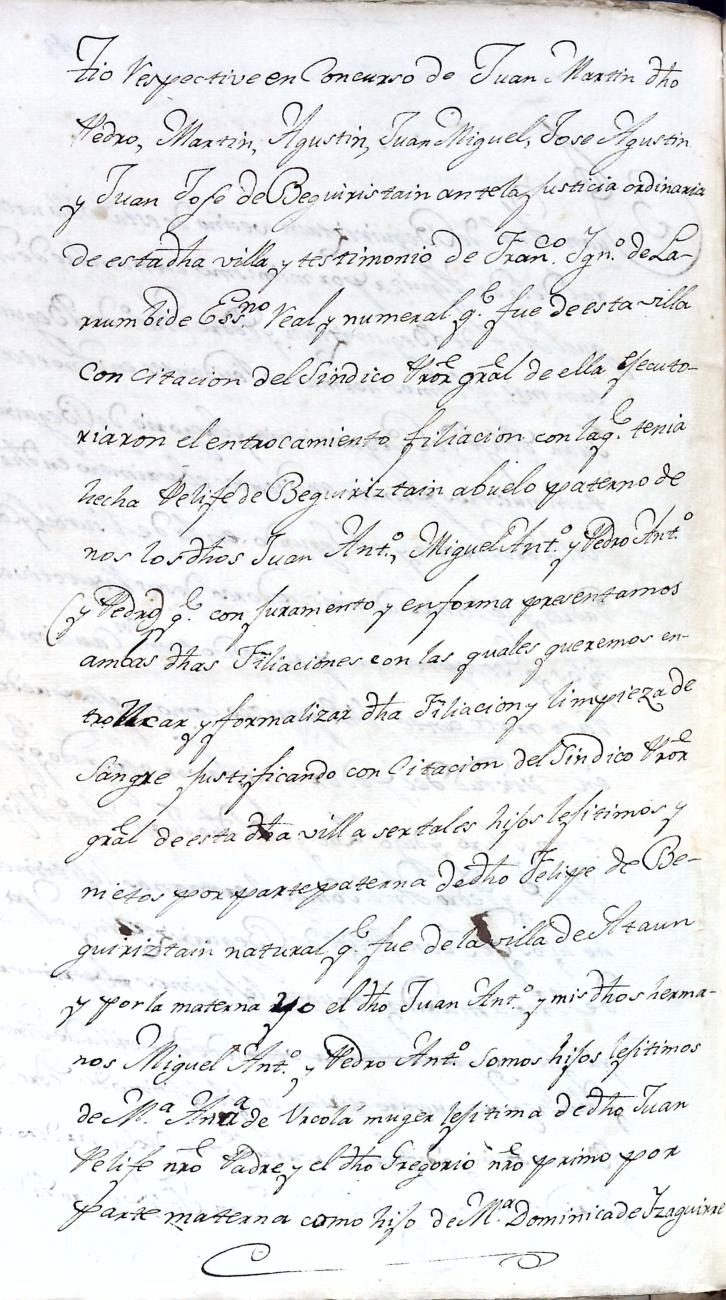 tio respective en Concurso de Juan Martin dho
Pedro, Martin, Agustin, Juan Miguel, Jose Agustin
y Juan Jose de Beguiristain antela justicia ordinaria
de esta dha villa y testimonio de Franco. Ign.o de La-
rrumbide Essno. Real y numeral q.e fue de esta villa
Con Citacion del Sindico Pror gral de ella ejecuto-
riaron el entrocamiento filiacion con la q.e tenia
hecha Pelife de Beguiriztain abuelo paterno de
nos los dhos Juan Ant.o, Miguel Ant.o y Pedro Ant.o
(y Pedro) q.e con juramento y enforma presentamos
ambas dhas Filiaciones con las quales queremos en-
troncar y formalizar dha Filiacion y limpieza de
Sangre justificando con Citacion del Sindico Pror
gral de esta dha villa ser tales hijos lejitimos y
nietos por parte paterna de dho Felipe de Be-
guiriztain natural q.e fue de la villa de Ataun
y por la materna yo el dho Juan Ant.o y mis dhos herma-
nos Miguel Ant.o y Pedro Ant.o Somos hijos lejitimos
de M.a Ana de Urcola muger lejitima de dho Juan
Pelife nro Padre y el dho Gregorio nro primo por
parte materna como hijo de M.a Dominica de Izaguirre